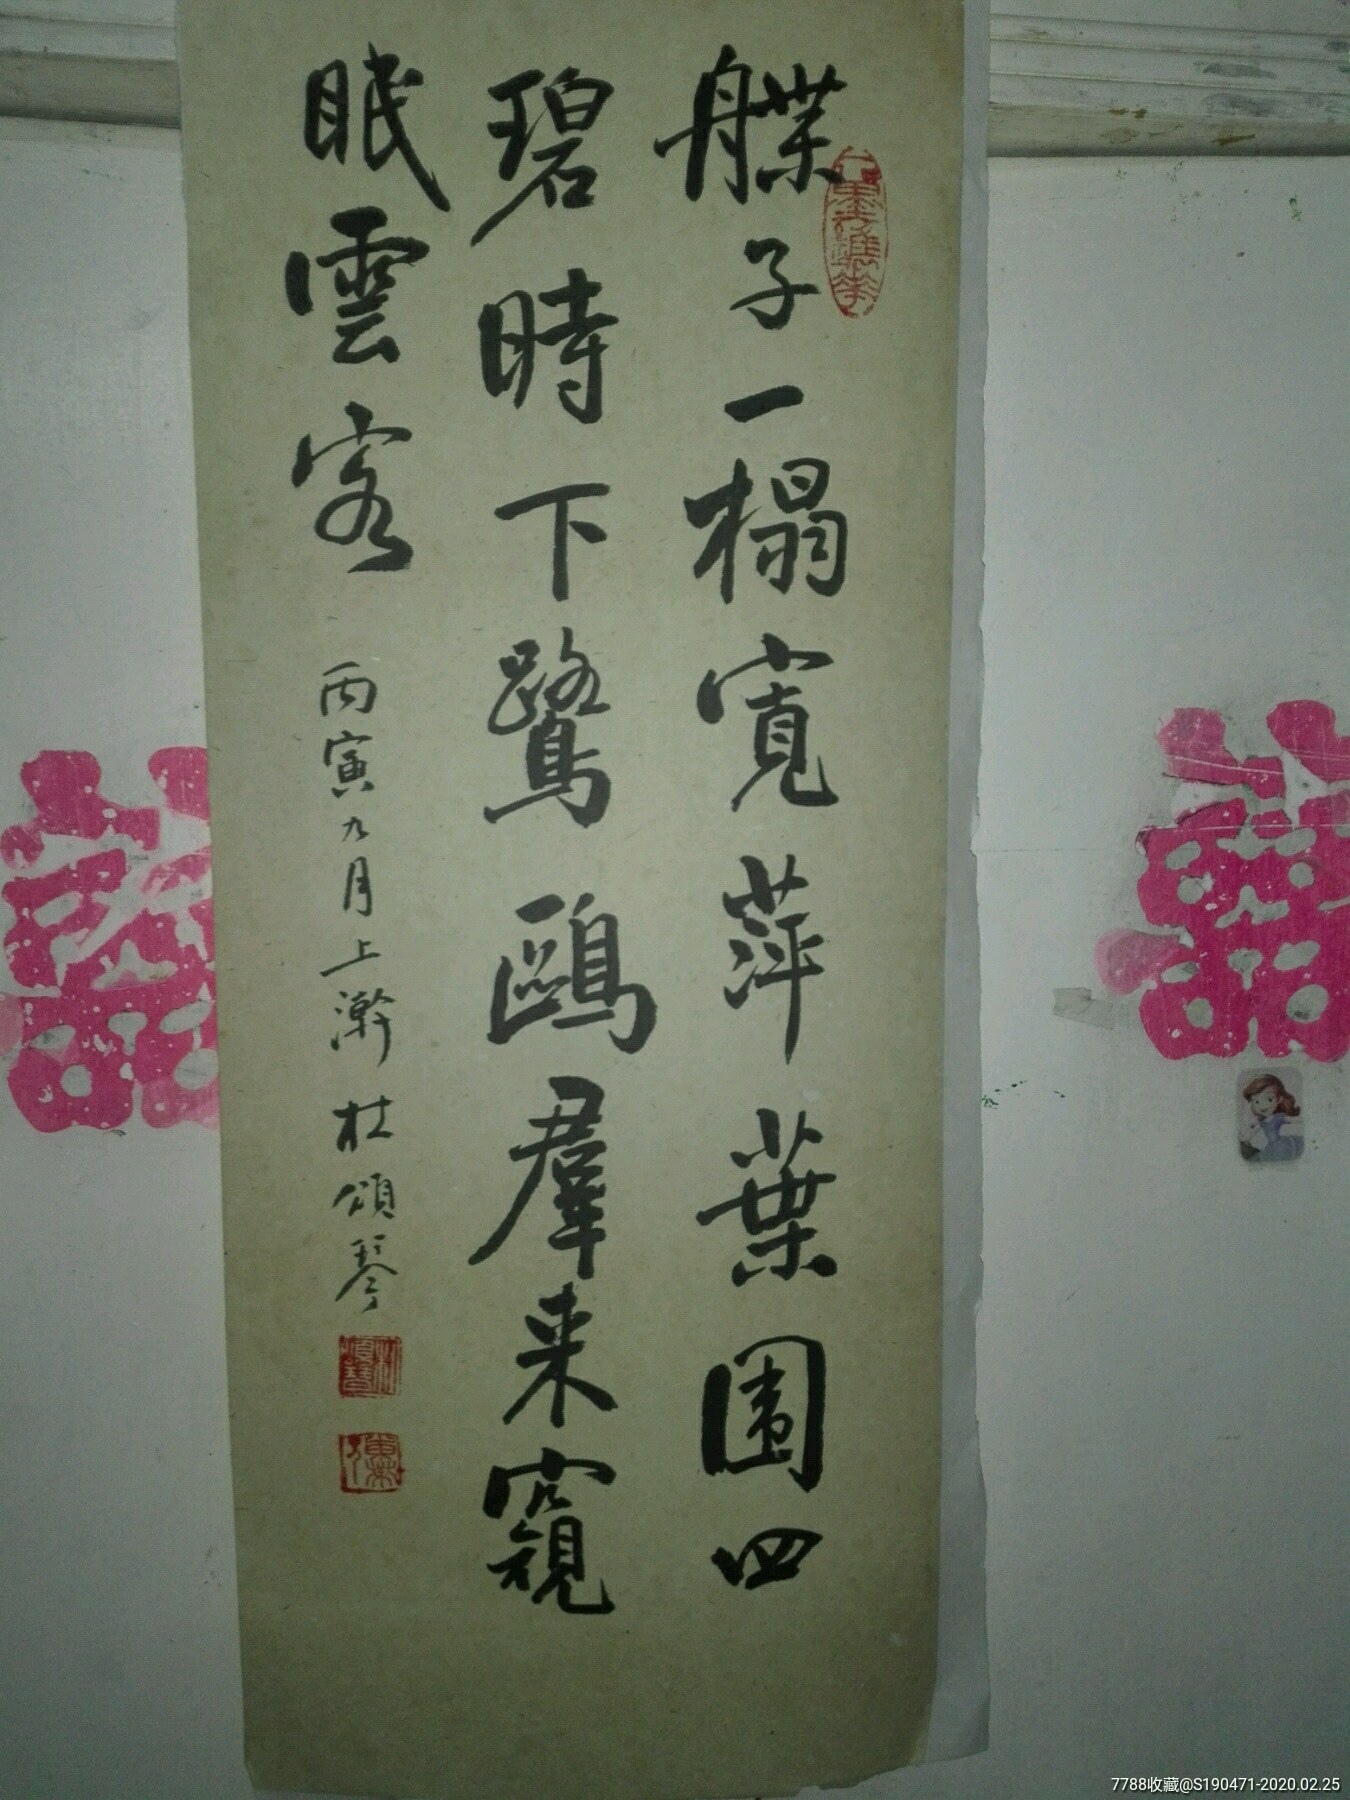 艓子一榻寬萍葉圍四
碧時下鷺鷗羣來窺
眠雲客
丙寅九月上澣杜頌琴
7788收藏@S190471-2020.02.25